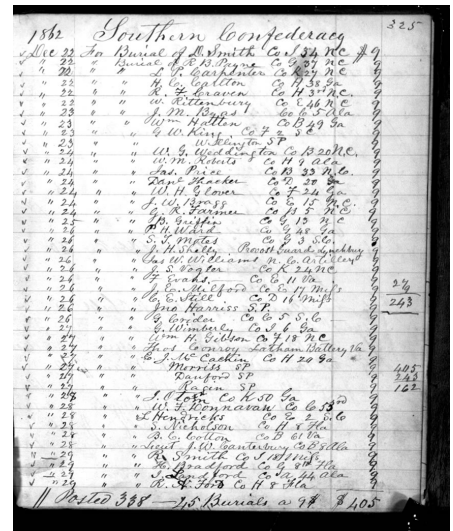 325
1862 Southern Confederacy
Dec 22 For Burial of D. Smith Co I 34 NC $ 9
" 22 " Burial of R B. Payne Co G 37 NC 9
" 22 " " L P. Carpenter Co K 27 NC 9
" 22 " " H. C. Carlton Co 38 Ga 9
" 22 " " R. F. Craven Co H 3 NC. 9
" 22 " " W. Rittenbury Co E 46 NC 9
" 23 " " J. M. Co C 5 Ala 9
" 23 " " Wm Hatten Co D 49 Ga 9
" 23 " " G W. King Co F 2 SC 9
" 23 " " SP 9
" 24 " " W. G. Weddington Co B 20 NC, 9
" 24 " " W. M. Roberts Co H 9 Ala 9
" 24 " " Jas. Price Co B 33 N.C. 9
" 24 " " Danl Thacker Co D 20 Ga 9
" 24 " " W. H Glover Co F 24 Ga 9
" 24 " " J. W. Bragg Co E 15 N.C. 9
" 24 " " G. R. Farmer Co B 5 NC 9
" 25 " " J B. Griffin Co G 13 NC 9
" 26 " " P H. Ward Co G 48 Ga 9
" 26 " " S. T. Motes Co G 3 S.C. 9
" 26 " " J. H. Shelly Provost Guard Lynchburg 9
" 26 " " Jas W. Williams N. C. Artillery 9
" 26 " " J. S. Vogler Co K 24 NC 9
" 26 " " F. Evans Co E 11 Va 9
" 26 " " J. E. Milford Co E 17 Miss 9
" 26 " " C. C. Still Co D 16 Miss 9 243
" 26 " " Jno Harriss S.P. 9
" 26 " " G. Crider Co C 5 S.C 9
" 27 " " G. Wimberly Co I 6 Ga 9
" 27 " " Wm H. Gibson Co F 18 NC 9
" 27 " " Thos Conroy Latham Battery Va 9
" 27 " " C. J. McCachin Co H 20 Ga 9
" 27 " " Morriss SP 9 405
" 27 " " Danford SP 9 243
" 27 " " Ragin SP 9 162
" 28 " " J. Co K 50 Ga 9
" 28 " " W. F. Donnavan Co C 53rd 9
" 28 " " L Hendricks Co E 2 S.C 9
" 28 " " S. Nicholson Co H 8 Fla 9
" 28 " " B. C. Cotton Co B 61 Va 9
" 28 " " Lieut J. W. Canterbury Co E 8 Ala 9
" 29 " " R. Smith Co I 18 Miss 9
" 29 " " H. Bradford Co G 8th Fla 9
" 29 " " J. Langford Co A 44 Ala 9
" 29 " " R. A. Ford Co H 8 Fla 9
Posted 338 — 45 Burials a 9$ $ 405